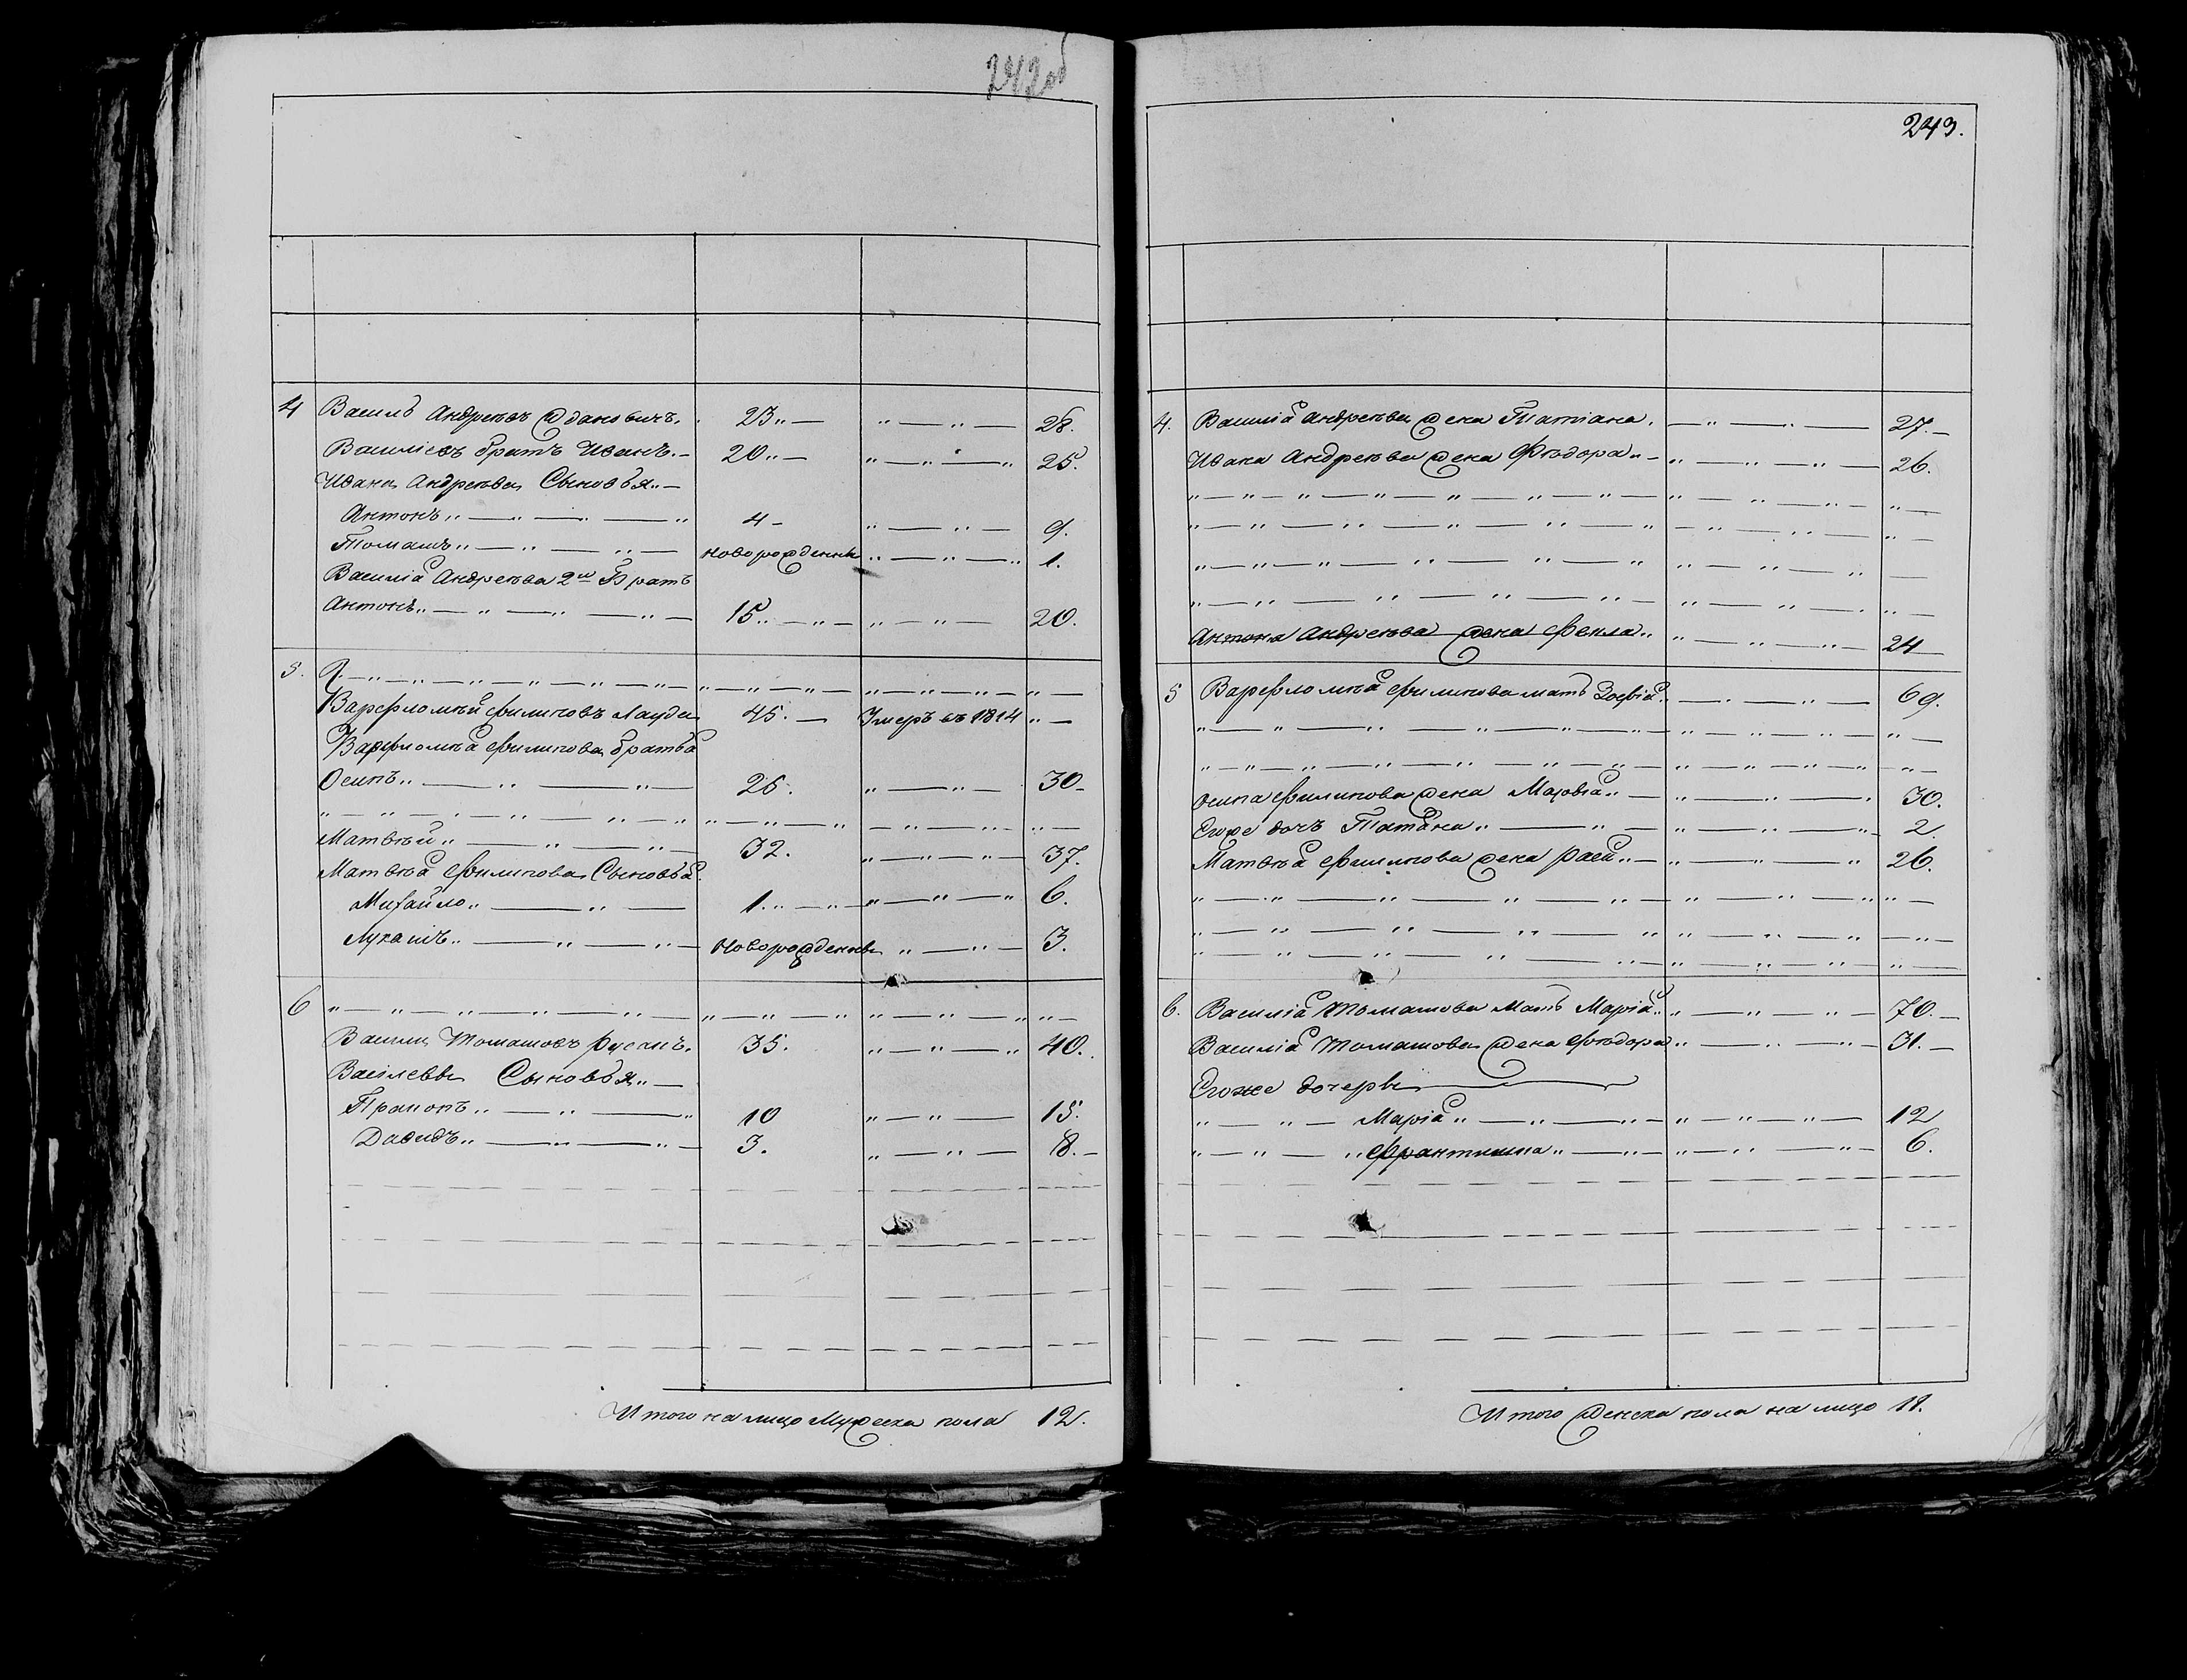 242об
4 Василь Андреевъ Жданович. 23 28.
Василiевъ братъ Иванъ. 20 25.
Ивана Андреева Сыновья
Антонъ 4 9.
Томашъ новорожденны 1.
Василiа Андреева 2й Братъ
Антонъ 15 20.
5.
Варфломей Филиповъ Лауда 45. Умеръ въ 1814
Варфломеа Филипова братьа
Осипъ 25. 30
Матвѣй 32. 37.
Матвѣа Филипова Сыновьа
Михайло 1. 6.
Лукашъ Новорожденны 3.
6
Василь Томашовъ 35. 40.
Василевы Сыновья
Пракопъ 10 15.
Давидъ 3. 8.
Итого на лицо Мужеска пола 12.
243.
4. Василiа Андреева жена Татiана. 27.
Ивана Андреева жена Фѣдора 26.
Антона Андреева жена Фекла 24
5 Варфломѣа Филипова мать Зофiа 69.
Осипа Филипова жена 30.
Егоже дочь Татьана 2.
Матвѣа Филипова жена 26.
6. Василiа Томашова Мать Марiа 70.
Василiа Томашова жена Фѣдора 31.
Егоже дочери
Марiа 12
Франтишка 6.
Итого женска пола на лицо 11.